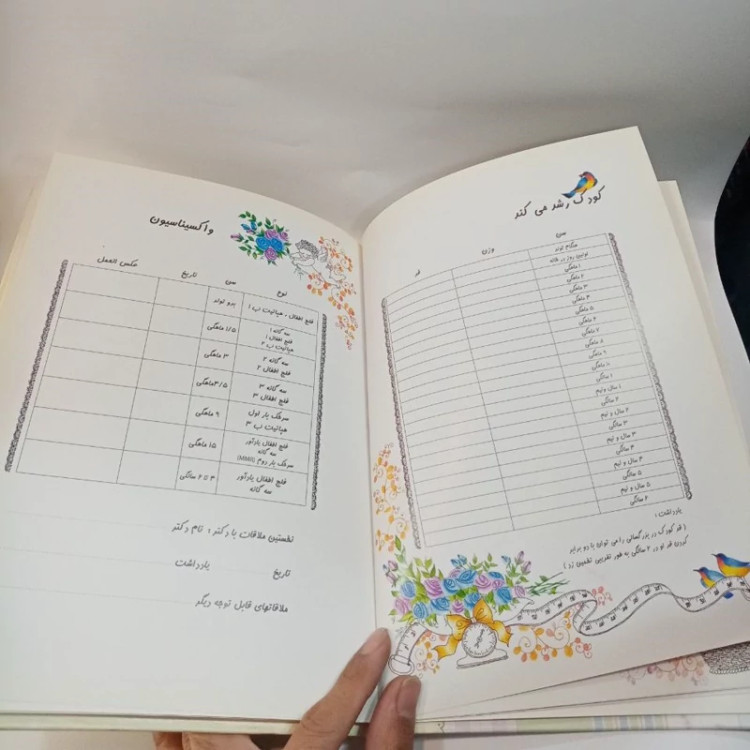 کودک رشد می کند
سن
وزن
قد
هنگام تولد
اولین روز در خانه
۱ ماهگی
۲ ماهگی
۳ ماهگی
۴ ماهگی
۵ ماهگی
۶ ماهگی
۷ ماهگی
۸ ماهگی
۹ ماهگی
۱۰ ماهگی
۱ سالگی
۱ سال و نیم
۲ سالگی
۲ سال و نیم
۳ سالگی
۳ سال و نیم
۴ سالگی
۴ سال و نیم
۵ سالگی
۵ سال و نیم
۶ سالگی
یادداشت :
( قد کودک در بزرگسالی را می توان با دو برابر
کردن قد او در ۲ سالگی به طور تقریبی تخمین زد )
واکسیناسیون
نوع
سن
تاریخ
عکس العمل
فلج اطفال ، هپاتیت ب ۱
بدو تولد
سه گانه ۱
فلج اطفال ۱
هپاتیت ب ۲
۱/۵ ماهگی
سه گانه ۲
فلج اطفال ۲
۳ ماهگی
سه گانه ۳
فلج اطفال ۳
۴/۵ ماهگی
سرخک بار اول
هپاتیت ب ۳
۹ ماهگی
فلج اطفال یادآور
سه گانه
سرخک بار دوم (MMR)
۱۵ ماهگی
فلج اطفال یادآور
سه گانه
۴ تا ۶ سالگی
نخستین ملاقات با دکتر ، نام دکتر
تاریخ
یادداشت
ملاقاتهای قابل توجه دیگر